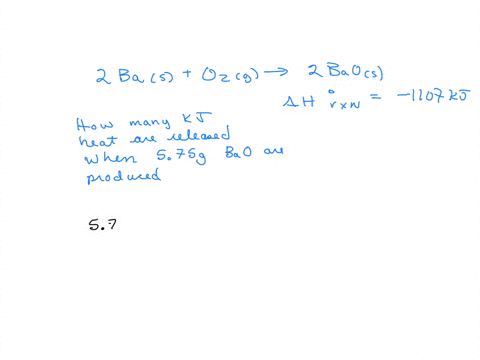 2 Ba (s) + O2 (g) → 2 BaO (s)
ΔH° rxn = -1107 kJ
How many KJ
heat are released
when 5.75g BaO are
produced
5.7